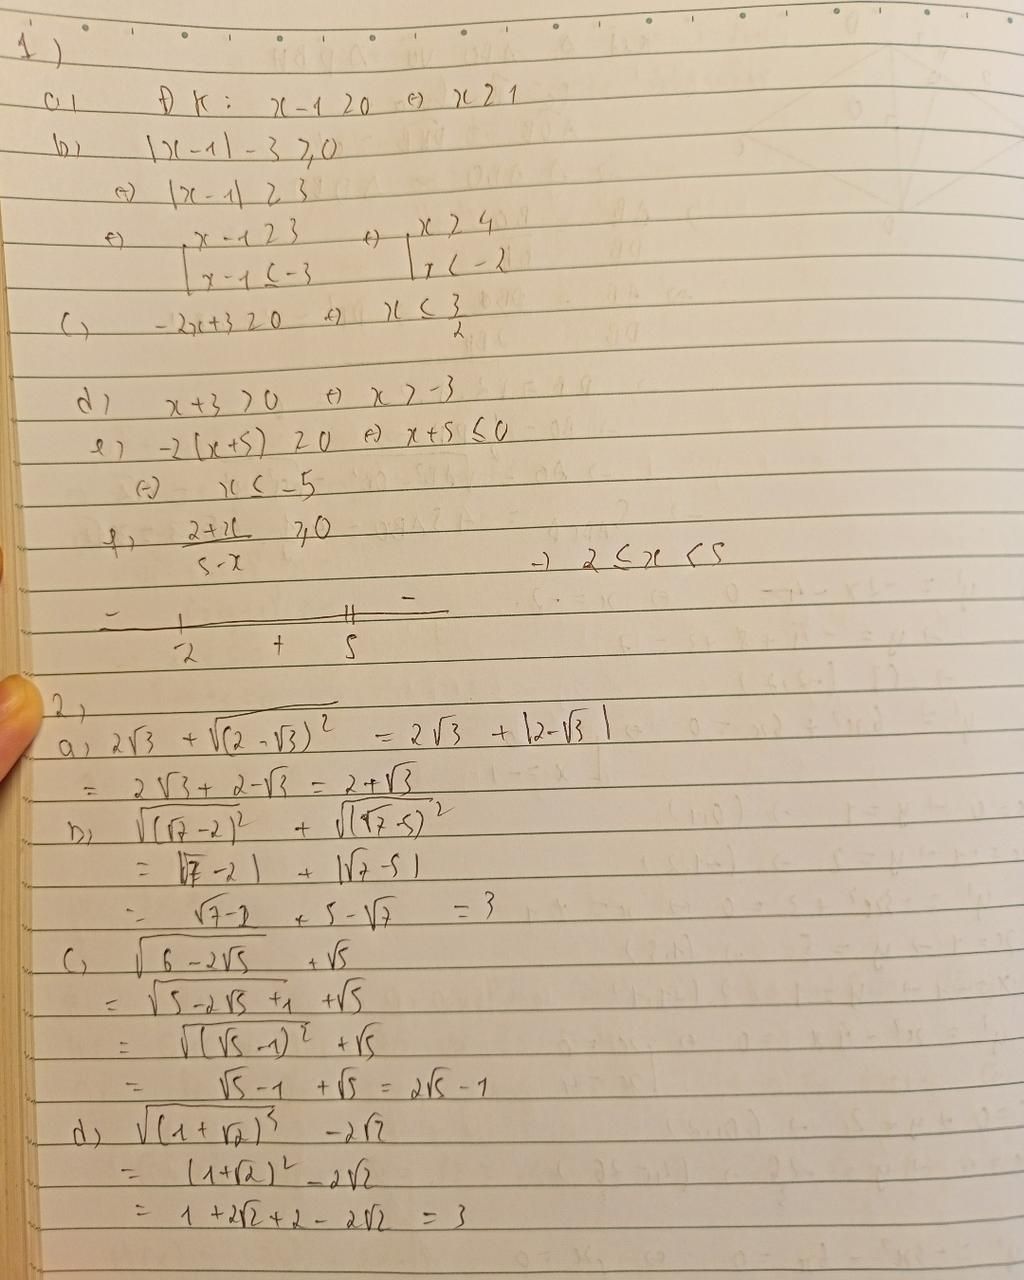 1)
a) ĐK: x-1 ≥ 0 ⇔ x ≥ 1
b) |x-1| - 3 ≥ 0
⇔ |x-1| ≥ 3
⇔ [ x-1 ≥ 3 ⇔ [ x ≥ 4
x-1 ≤ -3 x ≤ -2
c) -2x+3 ≥ 0 ⇔ x ≤ 3/2
d) x+3 > 0 ⇔ x > -3
e) -2(x+5) ≥ 0 ⇔ x+5 ≤ 0
⇔ x ≤ -5
f) (2+x)/(5-x) ≥ 0
→ 2 ≤ x < 5
- -
-2 + 5
2)
a) 2√3 + √(2-√3)² = 2√3 + |2-√3|
= 2√3 + 2-√3 = 2+√3
b) √(√7-2)² + √(√7-5)²
= |√7-2| + |√7-5|
= √7-2 + 5-√7 = 3
c) √(6-2√5) + √5
= √(5-2√5+1) + √5
= √(√5-1)² + √5
= √5-1 + √5 = 2√5-1
d) √(1+√2)⁵ - 2√2
= (1+√2)² - 2√2
= 1+2√2+2-2√2 = 3